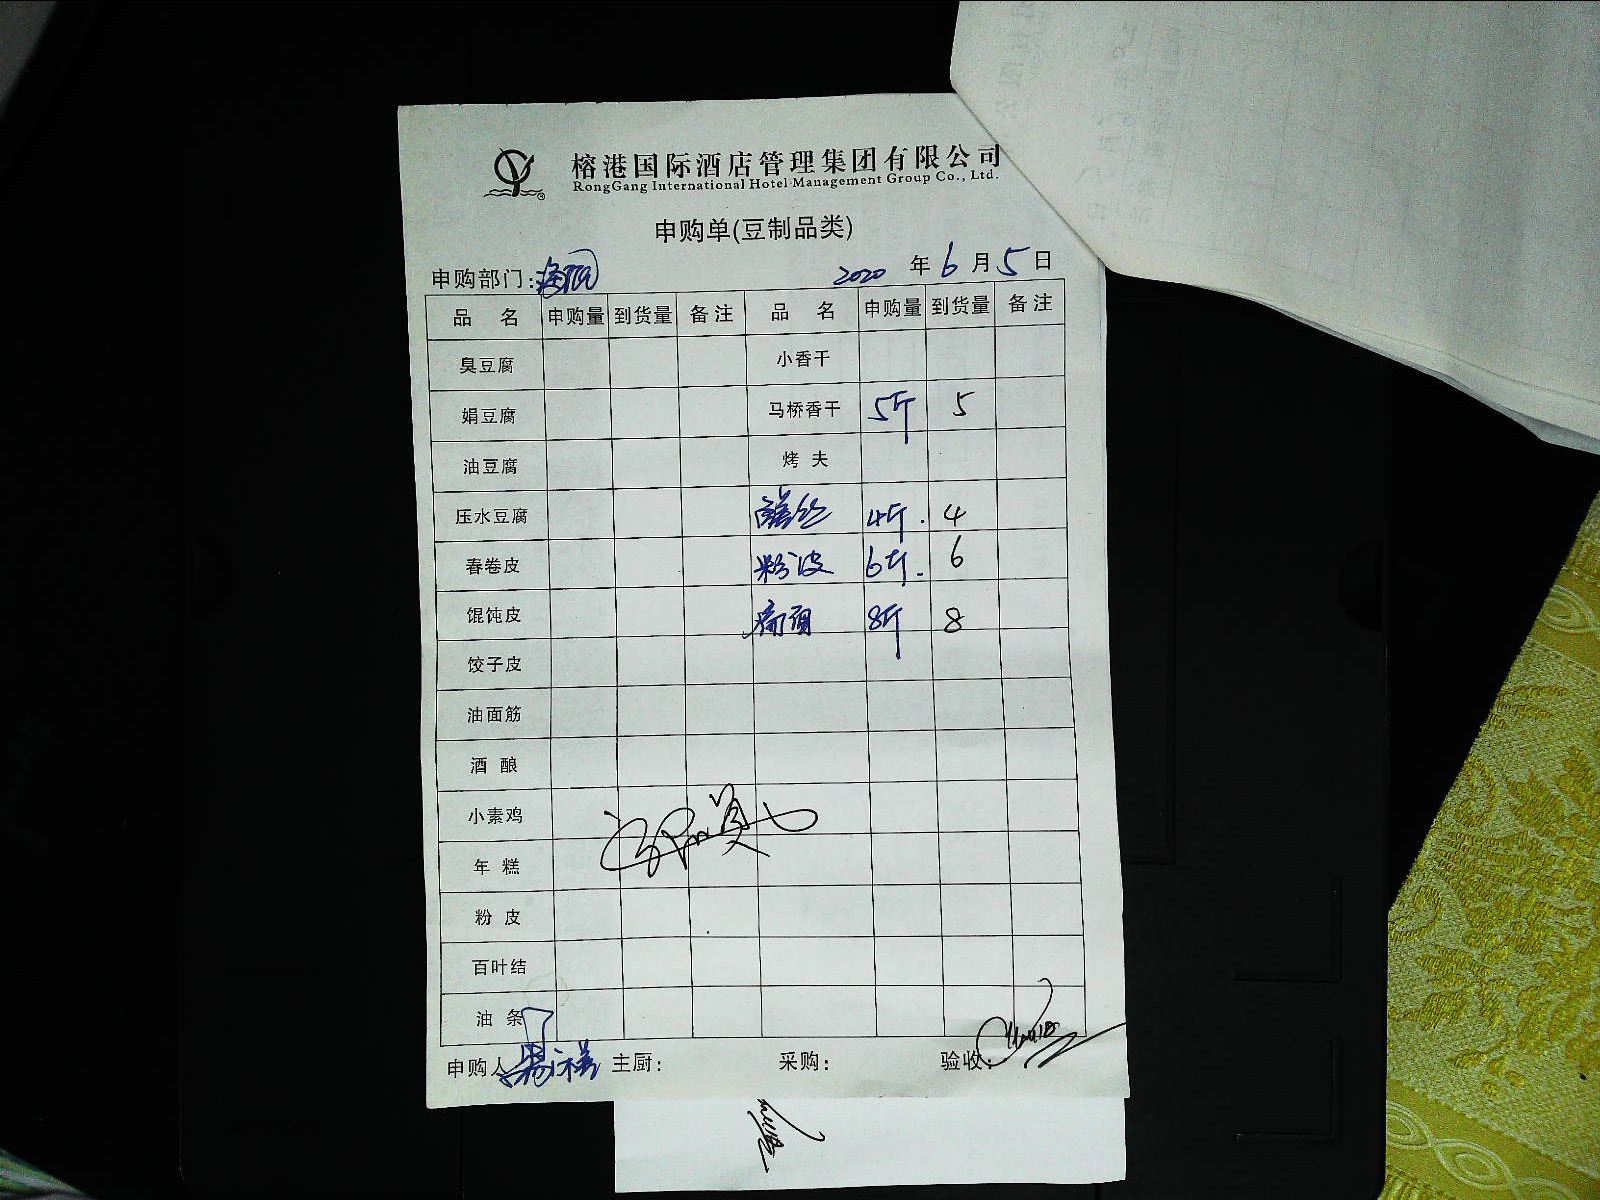 榕港国际酒店管理集团有限公司
RongGang International Hotel Management Group Co., Ltd.
申购单(豆制品类)
申购部门: 2020 年 6 月 5 日
品 名 申购量 到货量 备注 品 名 申购量 到货量 备注
臭豆腐 小香干
娟豆腐 马桥香干 5斤 5
油豆腐 烤 夫
压水豆腐 4斤. 4
春卷皮 粉皮 6斤. 6
馄饨皮 8斤 8
饺子皮
油面筋
酒 酿
小素鸡
年 糕
粉 皮
百叶结
油 条
申购人 主厨: 采购: 验收: